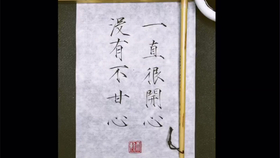 一直很開心
沒有不甘心